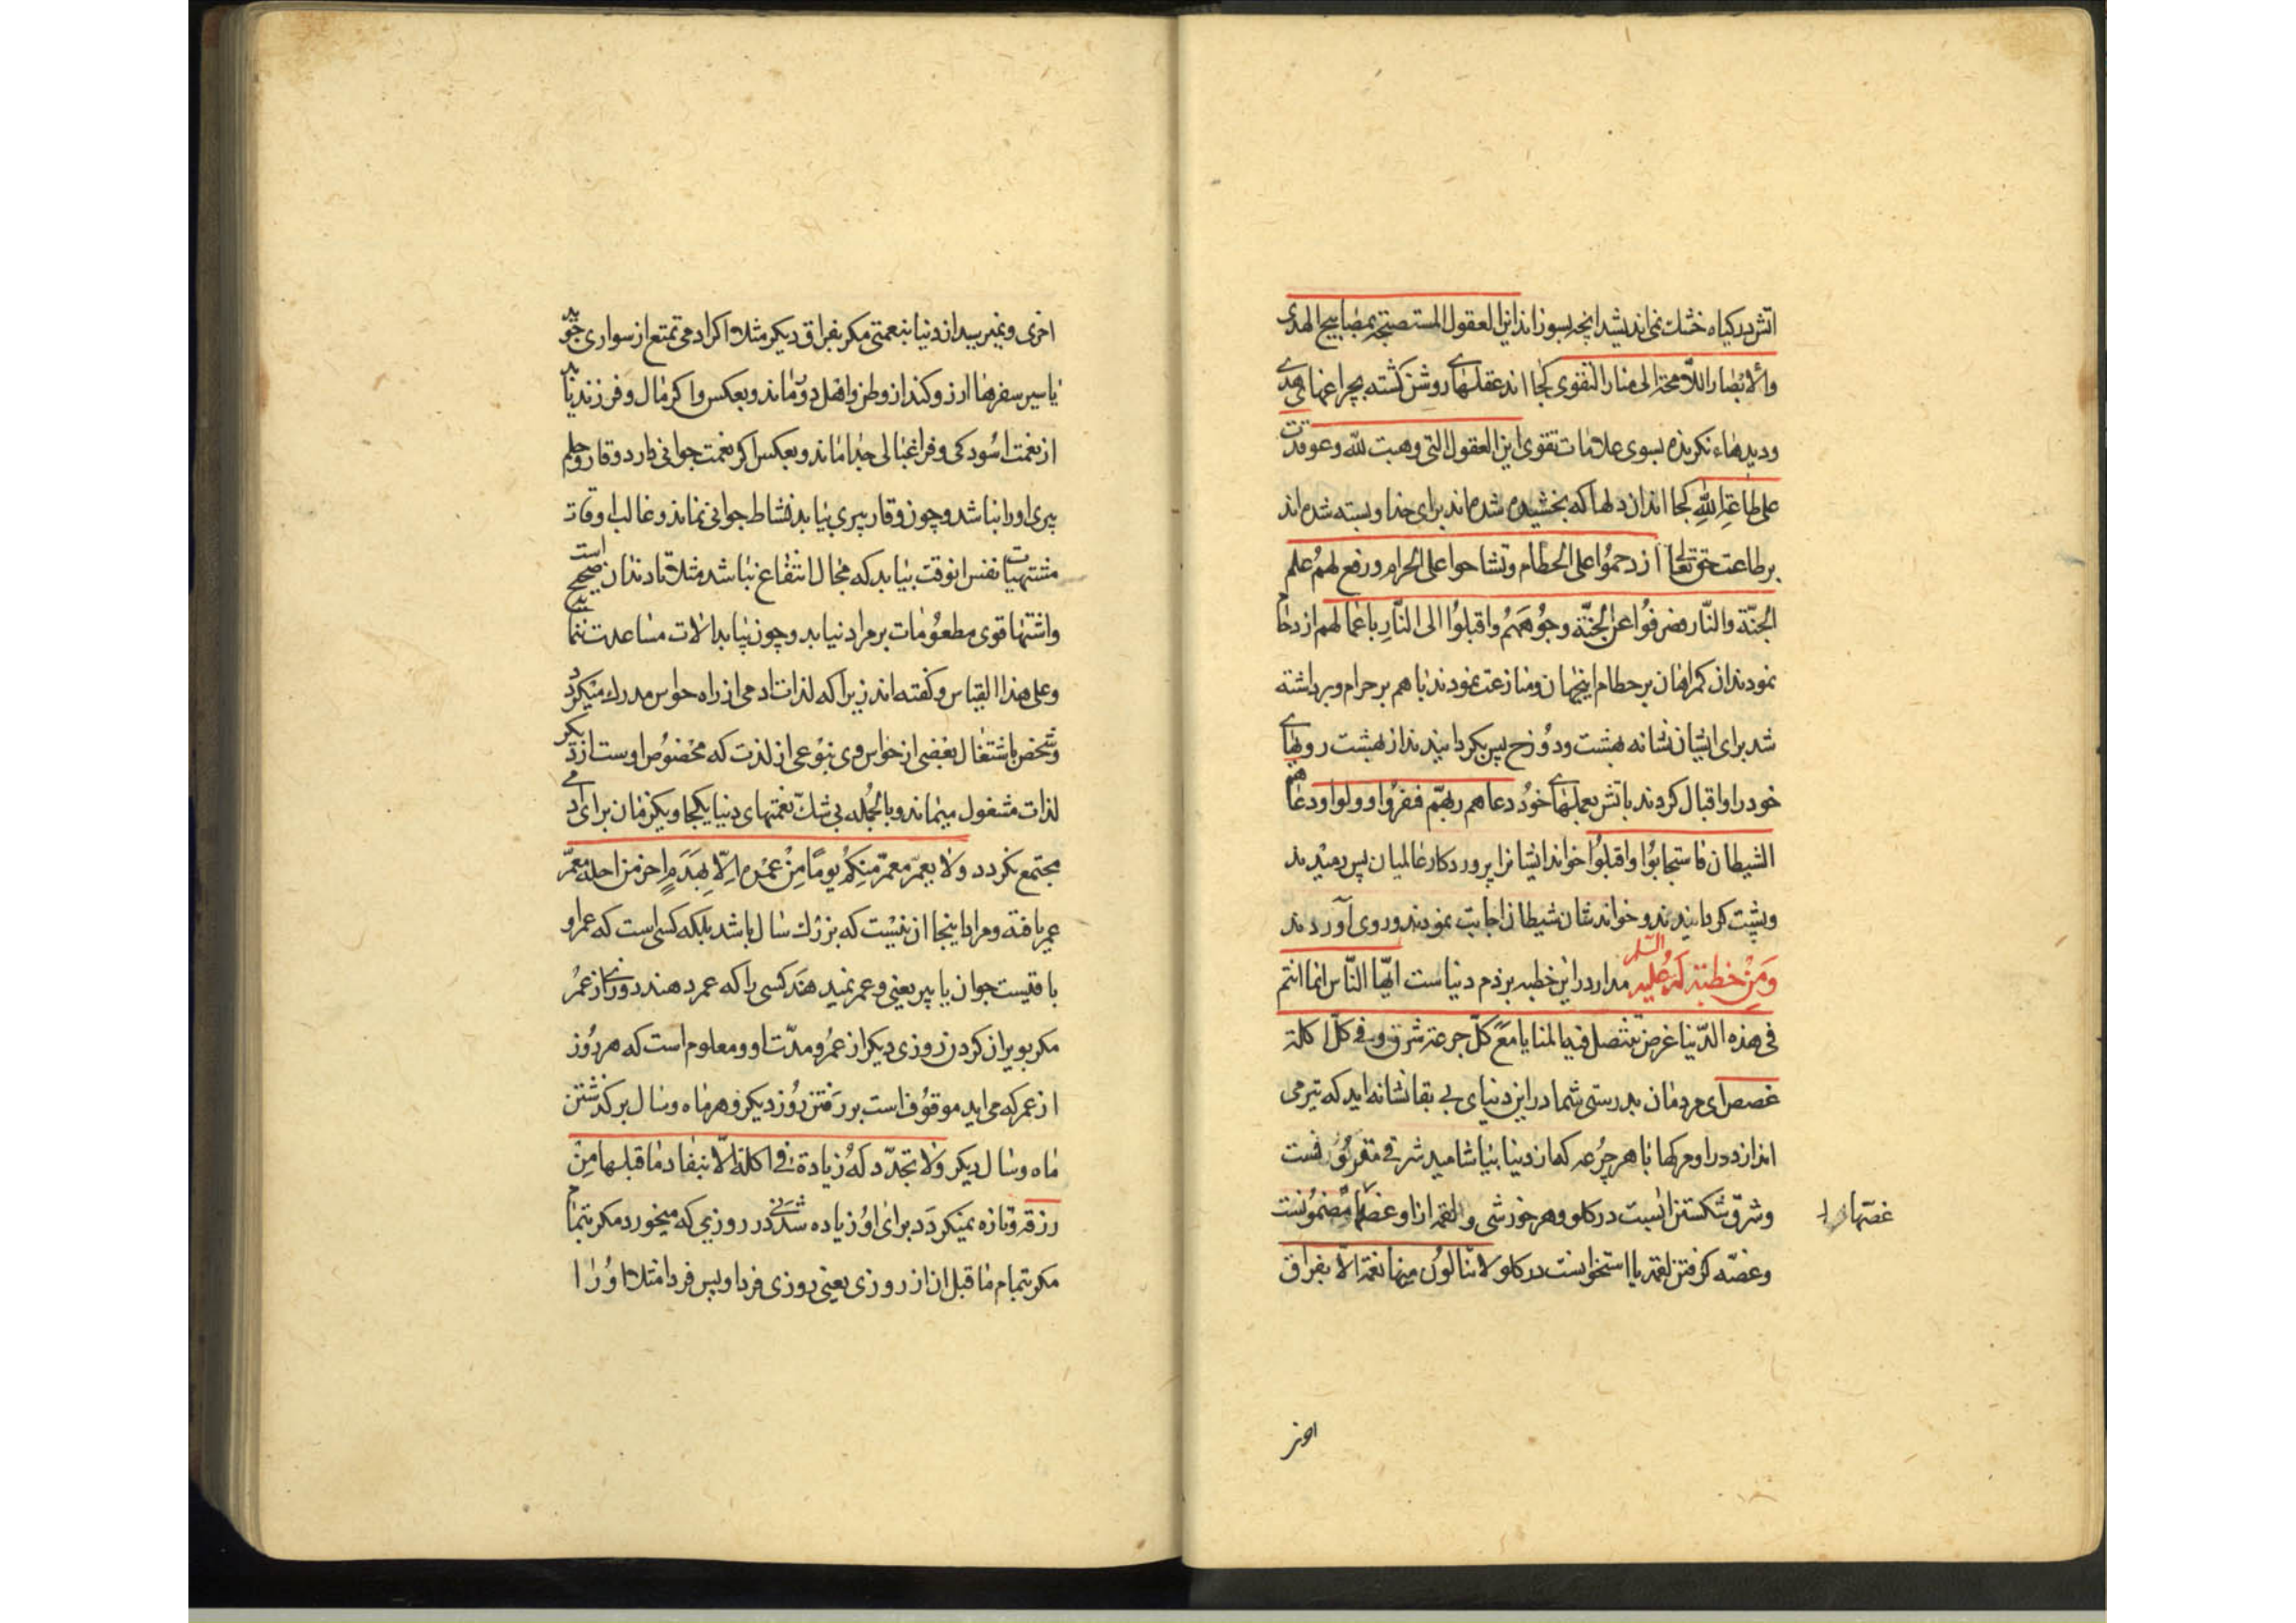 اتش در کیاه خشك نمی اندیشد انچه بسوزاند این العقول المستصبحة بمصابیح الهدی
والابصار اللامحة الی منار التقوی کجا اند عقلهای روشن کشته بچراغهای هدی
ودیدهاء نکرنده بسوی علامات تقوی این العقول التی وهبت لله وعوقدت
علی طاعة الله کجا اند ان دلها که بخشیده شده اند برای خدا و بسته شده اند
بر طاعت حق تعالی ازدحموا علی الحطام وتشاحوا علی الحرام ورفع لهم علم
الجنّة والنّار فصرفوا عن الجنّة وجوههم واقبلوا الی النّار باعمالهم ازدحام
نمودند ان کمراهان بر حطام اینجهان ومنازعت نمودند با هم بر حرام وبرداشته
شد برای ایشان نشانه بهشت ودوزخ پس بکردانیدند از بهشت رویهای
خود را واقبال کردند باتش بعملهای خود دعاهم ربهّم فنفروا وولوا ودعاهم
الشیطان فاستجابوا واقبلوا خواند ایشانرا پروردکار عالمیان پس رمیدند
وپشت کردانیدند وخواندشان شیطان اجابت نمودند وروی آوردند
وَمِنْ خطبَة لَهُ عَلیه والسّلم مدار در این خطبه بر ذم دنیاست ایّها النّاس انما انتم
فی هذه الدّنیا غرض تنتضل فیه المنایا مع کلّ جرعة شرق وفی کلّ اکلة
غصص ای مردمان بدرستی شما در این دنیای بی بقا نشانه اید که تیر می
اندازد در او مرکها با هر جرعه که از دنیا بیاشامید شرقی مقرونست
وشرق شکستن ابست در کلو وهر خورشی ولقمه از او غصها مضمونست
غصّها را
وغصّه کرفتن لقمه یا استخوانست در کلو لا تنالون منها نعمة الّا بفراق
اخری ونمیرسید از دنیا بنعمتی مکر بفراق دیکر مثلا اکر ادمی تمتع از سواری جوید
یا سیر سفرها ارزو کند از وطن واهل دور ماند وبعکس واکر مال وفرزند یابد
از نعمت اسودکی وفراغبالی جدا ماند وبعکس اکر نعمت جوانی دارد وقار وحلم
پیری او را نباشد وچون وقار پیری بیابد نشاط جوانی نماند وغالب اوقات
مشتهیات نفس انوقت بیابد که مجال انتفاع نباشد مثلا تا دندان صحیح است
واشتها قوی مطعومات بر مراد نیابد وچون بیابد الات مساعدت ننماید
وعلی هذا القیاس وکفته اند زیرا که لذات ادمی از راه حواس مدرك میکردد
وشخص باشتغال بعضی از حواس وی بنوعی از لذت که مخصوص اوست از دیکر
لذات مشغول میماند وبالجمله بی شكّ نعمتهای دنیا یکجا ویکزمان برای ادمی
مجتمع نکردد ولا یعمّر معمّر منکم یومًا مِنْ عمْره اِلّا بِهَدَمِ اخر من اجله معمّر
عمر یافته ومراد اینجا ان نیست که بزرك سال باشد بلکه کسی است که عمر او
باقیست جوان یا پیر یعنی وعمر نمیدهند کسی را که عمر دهند روزی از عمر
مکر بویران کردن روزی دیکر از عمر ومدّت او ومعلوم است که هر روز
از عمر که می اید موقوف است بر رفتن روز دیکر وهر ماه وسال بر کذشتن
ماه وسال دیکر ولا تجدّد له زیادة فی اکلة الّا بنفاد ما قبلها مِنْ
رزقه وتازه نمیکردد برای او زیاده شدنی در روزیی که میخورد مکر بتمام
مکر بتمام ما قبل ان از روزی یعنی روزی فردا وپس فردا مثلا او را